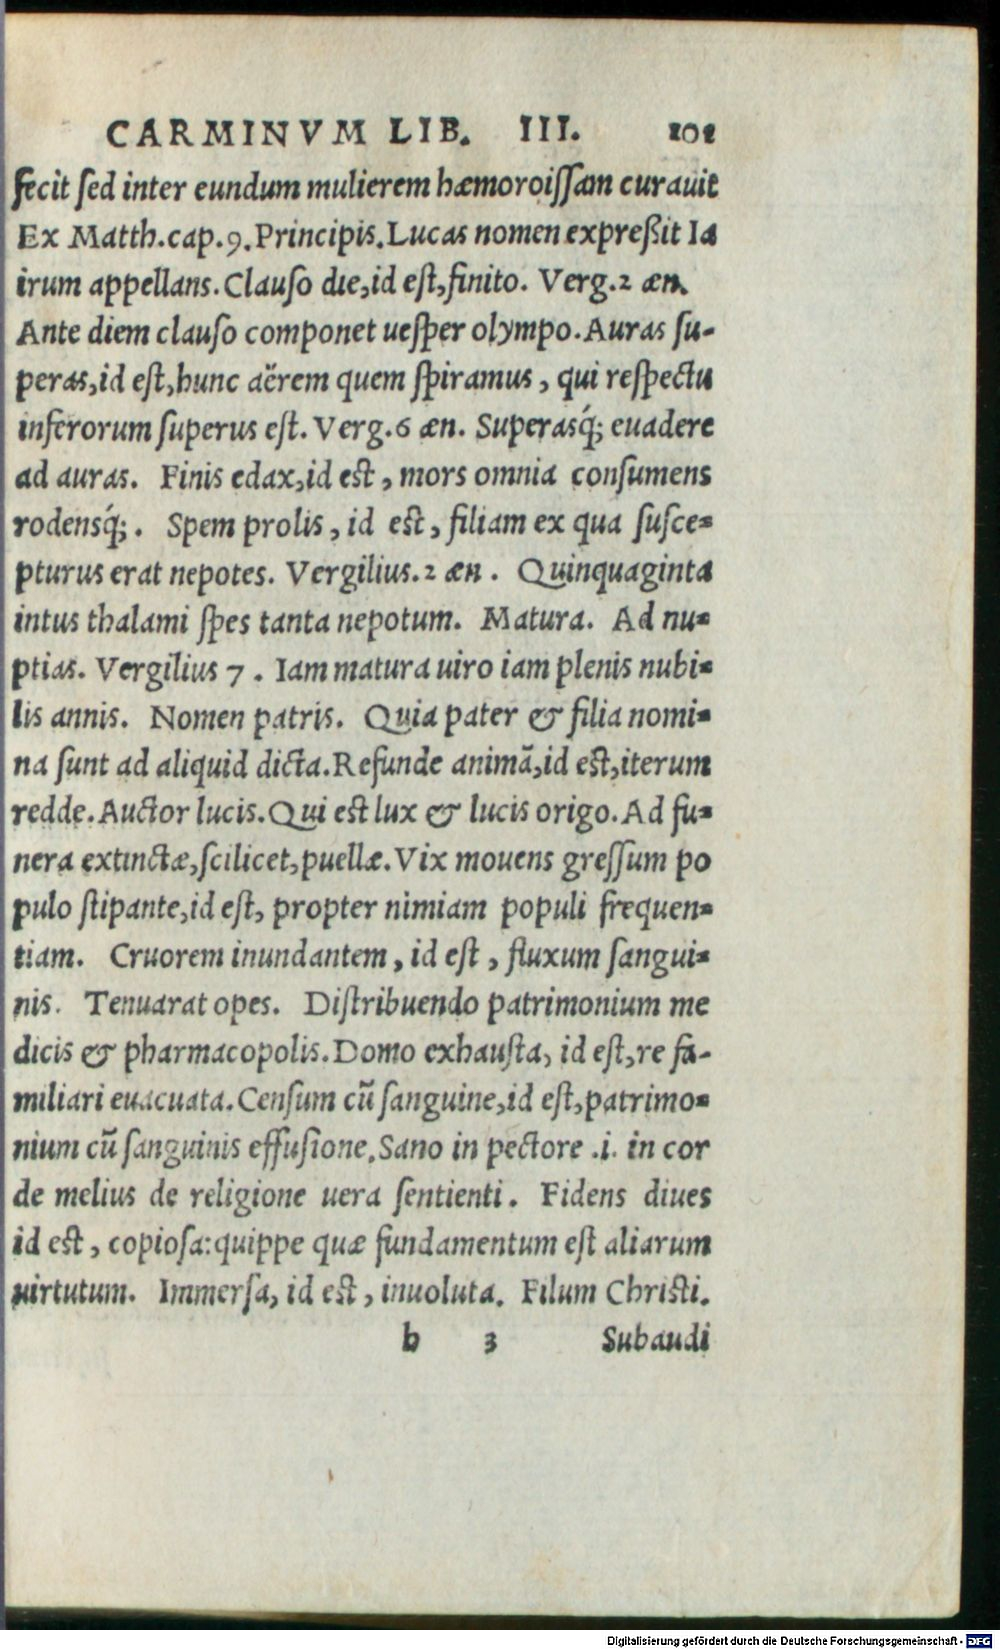 CARMINVM LIB. III. 101
fecit sed inter eundum mulierem hæmoroissam curauit
Ex Matth.cap.9.Principis.Lucas nomen expreßit Ia
irum appellans.Clauso die,id est,finito. Verg.2 æn.
Ante diem clauso componet uesper olympo.Auras su-
peras,id est,hunc aërem quem spiramus, qui respectu
inferorum superus est. Verg.6 æn. Superasq́; euadere
ad auras. Finis edax,id est, mors omnia consumens
rodensq́;. Spem prolis, id est, filiam ex qua susce-
pturus erat nepotes. Vergilius.2 æn. Quinquaginta
intus thalami spes tanta nepotum. Matura. Ad nu-
ptias. Vergilius 7. Iam matura uiro iam plenis nubi-
lis annis. Nomen patris. Quia pater & filia nomi-
na sunt ad aliquid dicta.Refunde animā,id est,iterum
redde.Auctor lucis.Qui est lux & lucis origo.Ad fu-
nera extinctæ,scilicet,puellæ.Vix mouens gressum po
pulo stipante,id est, propter nimiam populi frequen-
tiam. Cruorem inundantem, id est, fluxum sangui-
nis. Tenuarat opes. Distribuendo patrimonium me
dicis & pharmacopolis.Domo exhausta, id est,re fa-
miliari euacuata.Censum cū sanguine,id est,patrimo-
nium cū sanguinis effusione.Sano in pectore .i. in cor
de melius de religione uera sentienti. Fidens diues
id est, copiosa:quippe quæ fundamentum est aliarum
uirtutum. Immersa, id est, inuoluta. Filum Christi.
b 3 Subaudi
Digitalisierung gefördert durch die Deutsche Forschungsgemeinschaft - DFG